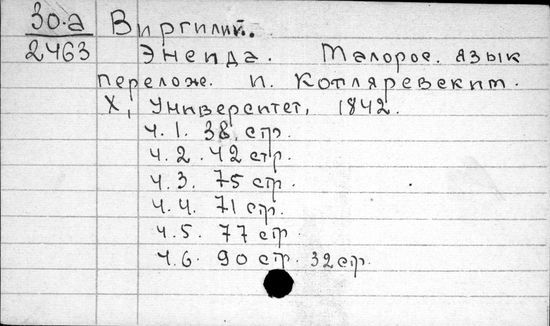 30.а Виргилий.
2463 Энеида. Малорос. язык
переложе. п. Котляревским.
Х, Университет, 1842.
ч. 1. 38 стр.
ч. 2. 42 стр.
ч. 3. 75 стр.
ч. 4. 71 стр.
ч. 5. 77 стр.
ч. 6. 90 стр. 32 стр.